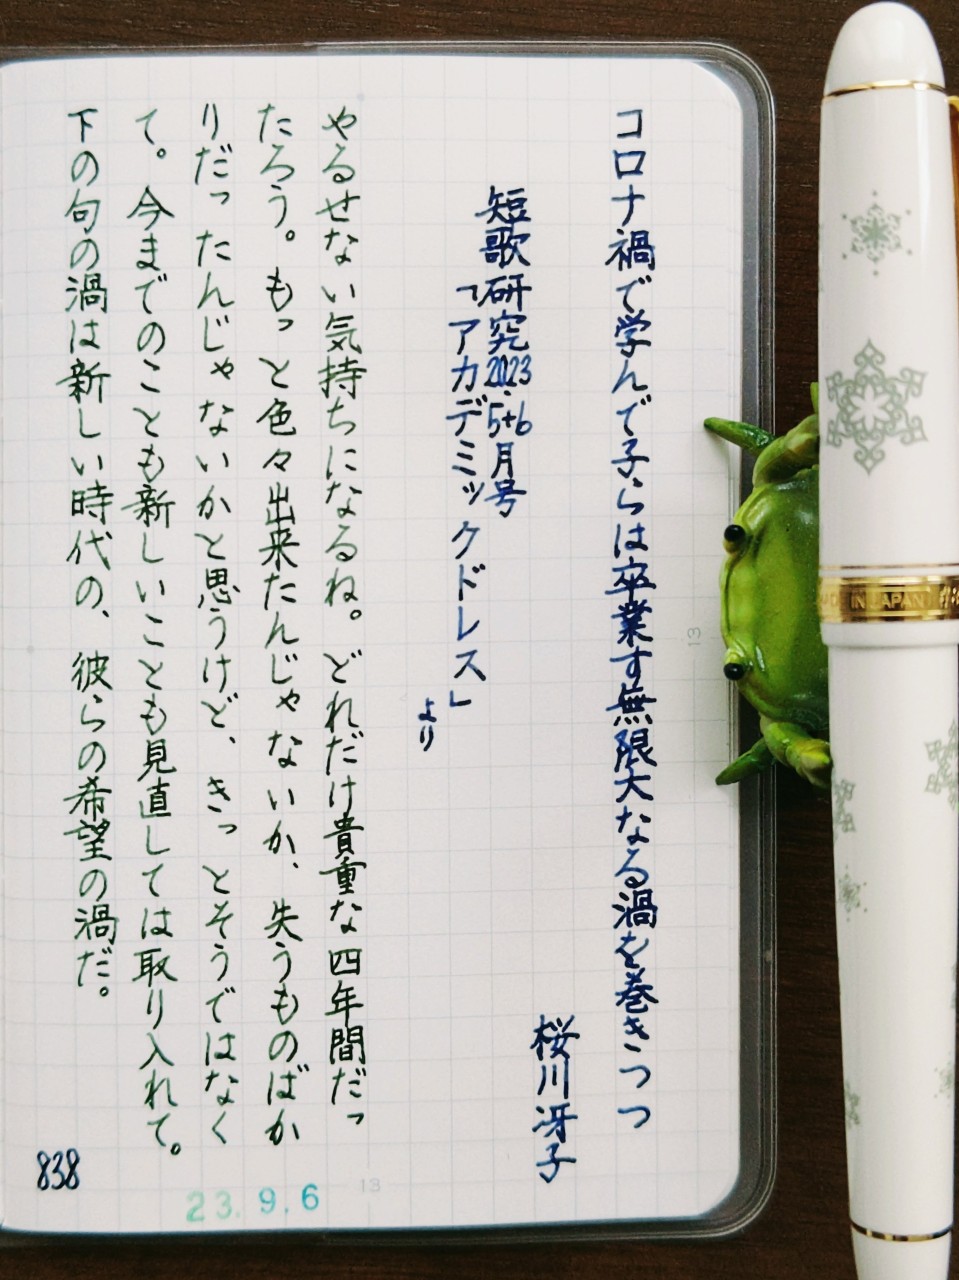 コロナ禍で学んで子らは卒業す無限大なる渦を巻きつつ
桜川冴子
短歌研究2023.5+6月号
「アカデミックドレス」
より
やるせない気持ちになるね。どれだけ貴重な四年間だっ
たろう。もっと色々出来たんじゃないか、失うものばか
りだったんじゃないかと思うけど、きっとそうではなく
て。今までのことも新しいことも見直しては取り入れて。
下の句の渦は新しい時代の、彼らの希望の渦だ。
838
23.9.6
13
13
MADE IN JAPAN